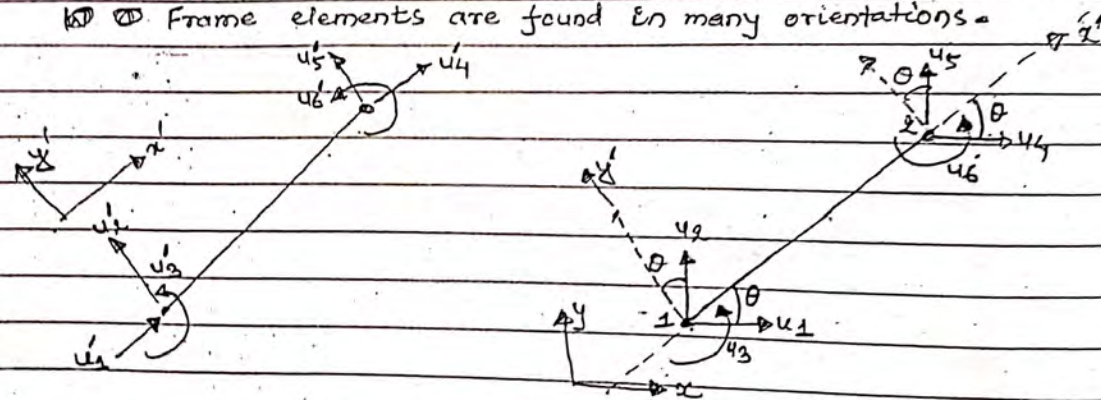 Frame elements are found in many orientations.
u'5 u'4
u'6
y' x'
u'2
u'3
u'1
x'
u5
θ
θ
2
u4
u6
y'
u2
θ
θ
1 u1
u3
y
x